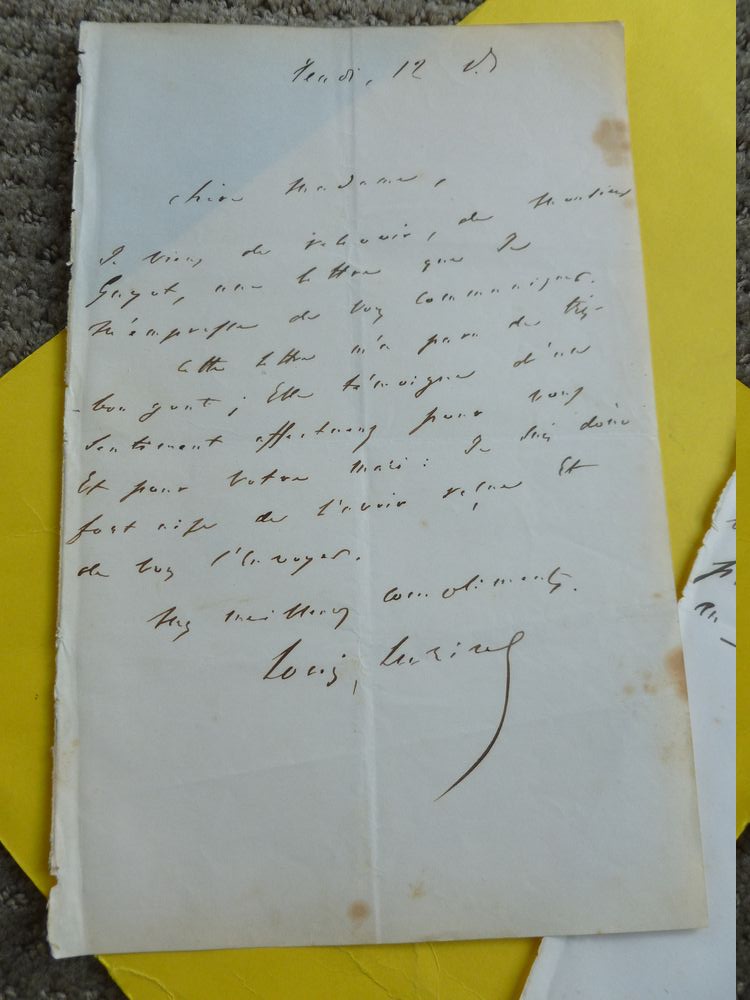 Jeudi, 12
chère Madame,
Je viens de recevoir, de Monsieur
Guyot, une lettre que Je
M'empresse de vous communiquer.
Cette lettre m'a paru de très-
bon gout ; Elle témoigne d'un
Sentiment affectueux pour vous
Et pour votre Mari : Je suis donc
fort aise de l'avoir reçue Et
de vous l'Envoyer.
Mes meilleurs compliments.
Louis Lurine